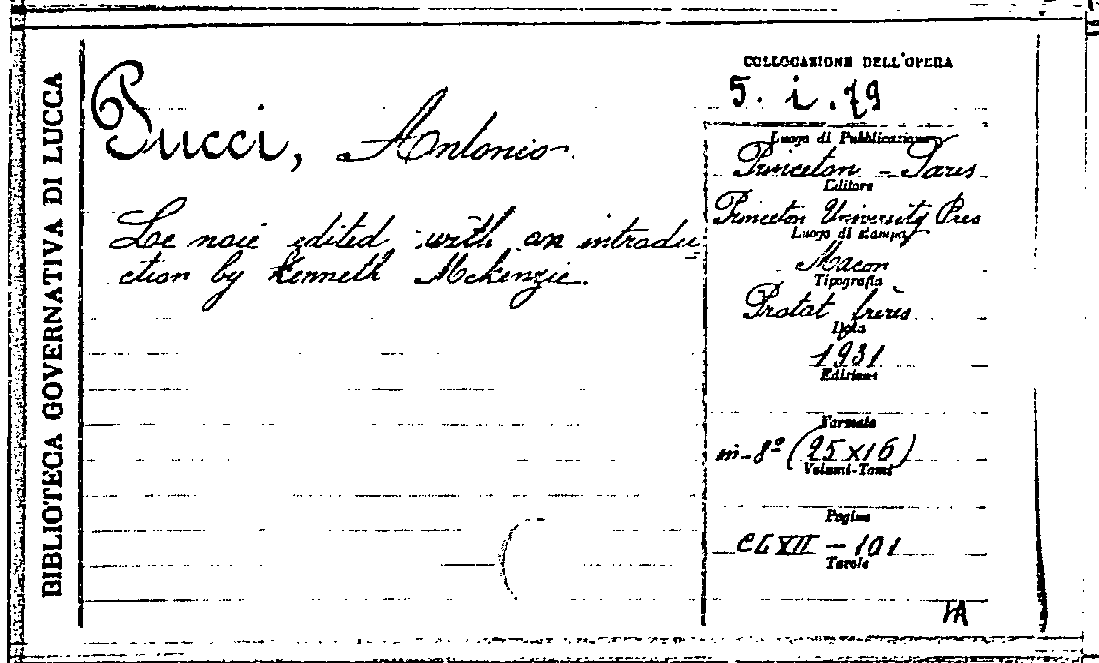 BIBLIOTECA GOVERNATIVA DI LUCCA
Pucci, Antonio
Le noie edited with an introdu
ction by Kenneth Mckenzie.
COLLOCAZIONE DELL'OPERA
5. i. 79
Luogo di Pubblicazione
Princeton - Paris
Editore
Princeton University Pres
Luogo di stampa
Macon
Tipografia
Protat frères
Data
1931
Edizione
Formato
in-8º (25x16)
Volumi-Tomi
Pagine
CLXII - 101
Tavole